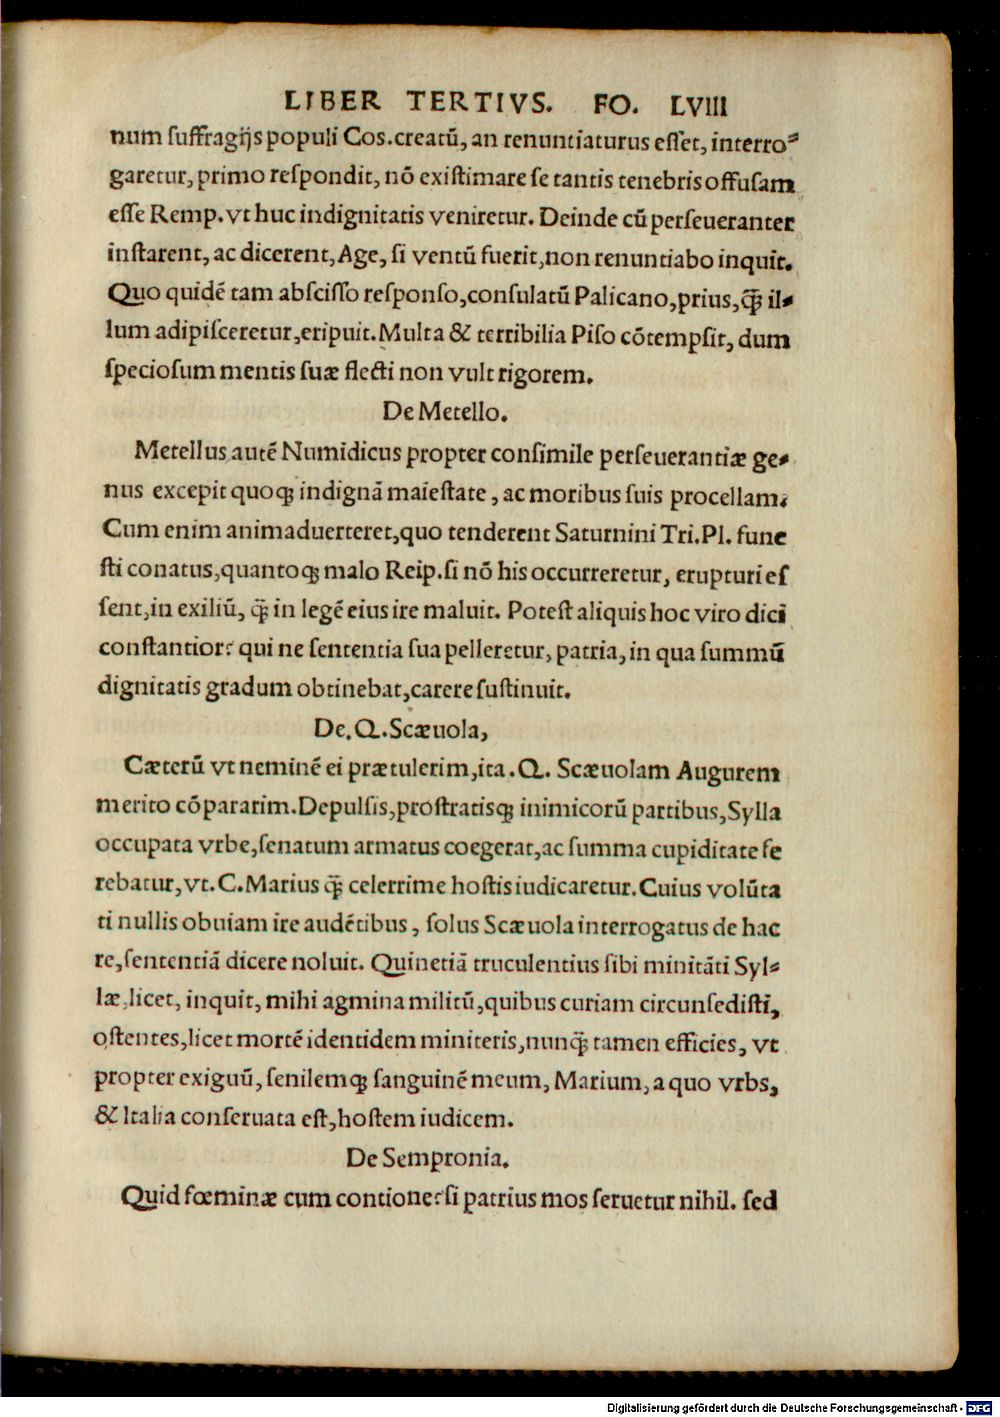 LIBER TERTIVS. FO. LVIII
num ſuffragĳs populi Cos.creatũ, an renuntiaturus eſſet, interro⸗
garetur, primo reſpondit, nõ exiſtimare ſe tantis tenebris offuſam
eſſe Remp. vt huc indignitatis veniretur. Deinde cũ perſeueranter
inſtarent, ac dicerent, Age, ſi ventũ fuerit, non renuntiabo inquit.
Quo quidẽ tam abſciſſo reſponſo, conſulatũ Palicano, prius, q̃ il⸗
lum adipiſceretur, eripuit. Multa & terribilia Piſo cõtempſit, dum
ſpecioſum mentis ſuæ flecti non vult rigorem.
De Metello.
Metellus autẽ Numidicus propter conſimile perſeuerantiæ ge⸗
nus excepit quoqꝫ indignã maieſtate, ac moribus ſuis procellam.
Cum enim animaduerteret, quo tenderent Saturnini Tri.Pl. fune
ſti conatus, quantoqꝫ malo Reip. ſi nõ his occurreretur, erupturi eſ
ſent, in exiliũ, q̃ in legẽ eius ire maluit. Poteſt aliquis hoc viro dici
conſtantior? qui ne ſententia ſua pelleretur, patria, in qua ſummũ
dignitatis gradum obtinebat, carere ſuſtinuit.
De.Q.Scæuola,
Cæterũ vt neminẽ ei prætulerim, ita.Q. Scæuolam Augurem
merito cõpararim. Depulſis, proſtratisqꝫ inimicorũ partibus, Sylla
occupata vrbe, ſenatum armatus coegerat, ac ſumma cupiditate fe
rebatur, vt.C.Marius q̃ celerrime hoſtis iudicaretur. Cuius volũta
ti nullis obuiam ire audẽtibus, ſolus Scæuola interrogatus de hac
re, ſententiã dicere noluit. Quinetiã truculentius ſibi minitãti Syl⸗
læ, licet, inquit, mihi agmina militũ, quibus curiam circunſediſti,
oſtentes, licet mortẽ identidem miniteris, nunq̃ tamen efficies, vt
propter exiguũ, ſenilemqꝫ ſanguinẽ meum, Marium, a quo vrbs,
& Italia conſeruata eſt, hoſtem iudicem.
De Sempronia.
Quid fœminæ cum contione? ſi patrius mos ſeruetur nihil. ſed
Digitalisierung gefördert durch die Deutsche Forschungsgemeinschaft - DFG